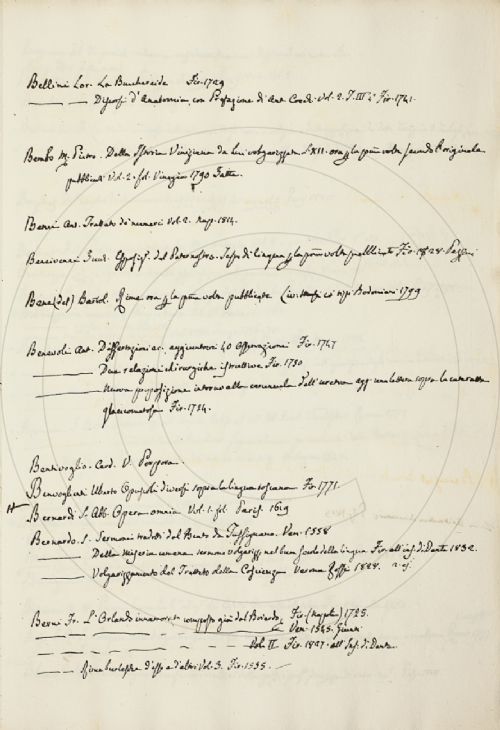 Bellini Lor. La Bucchereide Fir. 1729
——— Discorsi d'Anatomia con Prefazione di Ant. Cocchi Vol. 2. Fir. 1741.
Bembo M. Pietro. Della Istoria Viniziana da lui volgarizzata L. XII. ora la volta secondo l'originale
pubblicati Vol. 2. fol. Vinezia 1790 Zatta.
Ant. Trattato di Vol. 2. 1814.
del Paternostro. Testo di lingua la volta pubblicato Fir. 1828.
Bene (del) Bartol. Rime ora la volta pubblicate co' tipi Bodoniani 1799
Benevoli Ant. Dissertazioni ec. aggiuntovi 40 osservazioni Fir. 1747
——— Due relazioni chirurgiche Fir. 1730
——— Nuova proposizione intorno alla caruncula dell'uretra agg. una lettera sopra la cateratta
glaucomatosa Fir. 1724.
Bentivoglio. Card. V. Porpora.
Benvoglienti Uberto Opuscoli diversi sopra la lingua toscana Fir. 1771.
Bernardi S. Abb. Opera omnia Vol. 1. fol. Paris. 1619
Bernardo S. Sermoni tradotti dal Ven. 1558
——— Della Miseria umana sermone volgarizz. nel buon secolo della lingua Fir. all'ins. di Dante 1832.
——— Volgarizzamento del Trattato della Coscienza Verona 1828. 2 es.
Berni Fr. L'Orlando innamorato composto già dal Boiardo Fir. (Napoli) 1725.
——— Ven. 1545. Giunti
——— Vol. II Fir. 1827. all'Ins. di Dante.
——— Rime burlesche d'esso e d'altri Vol. 3. Fir. 1555.